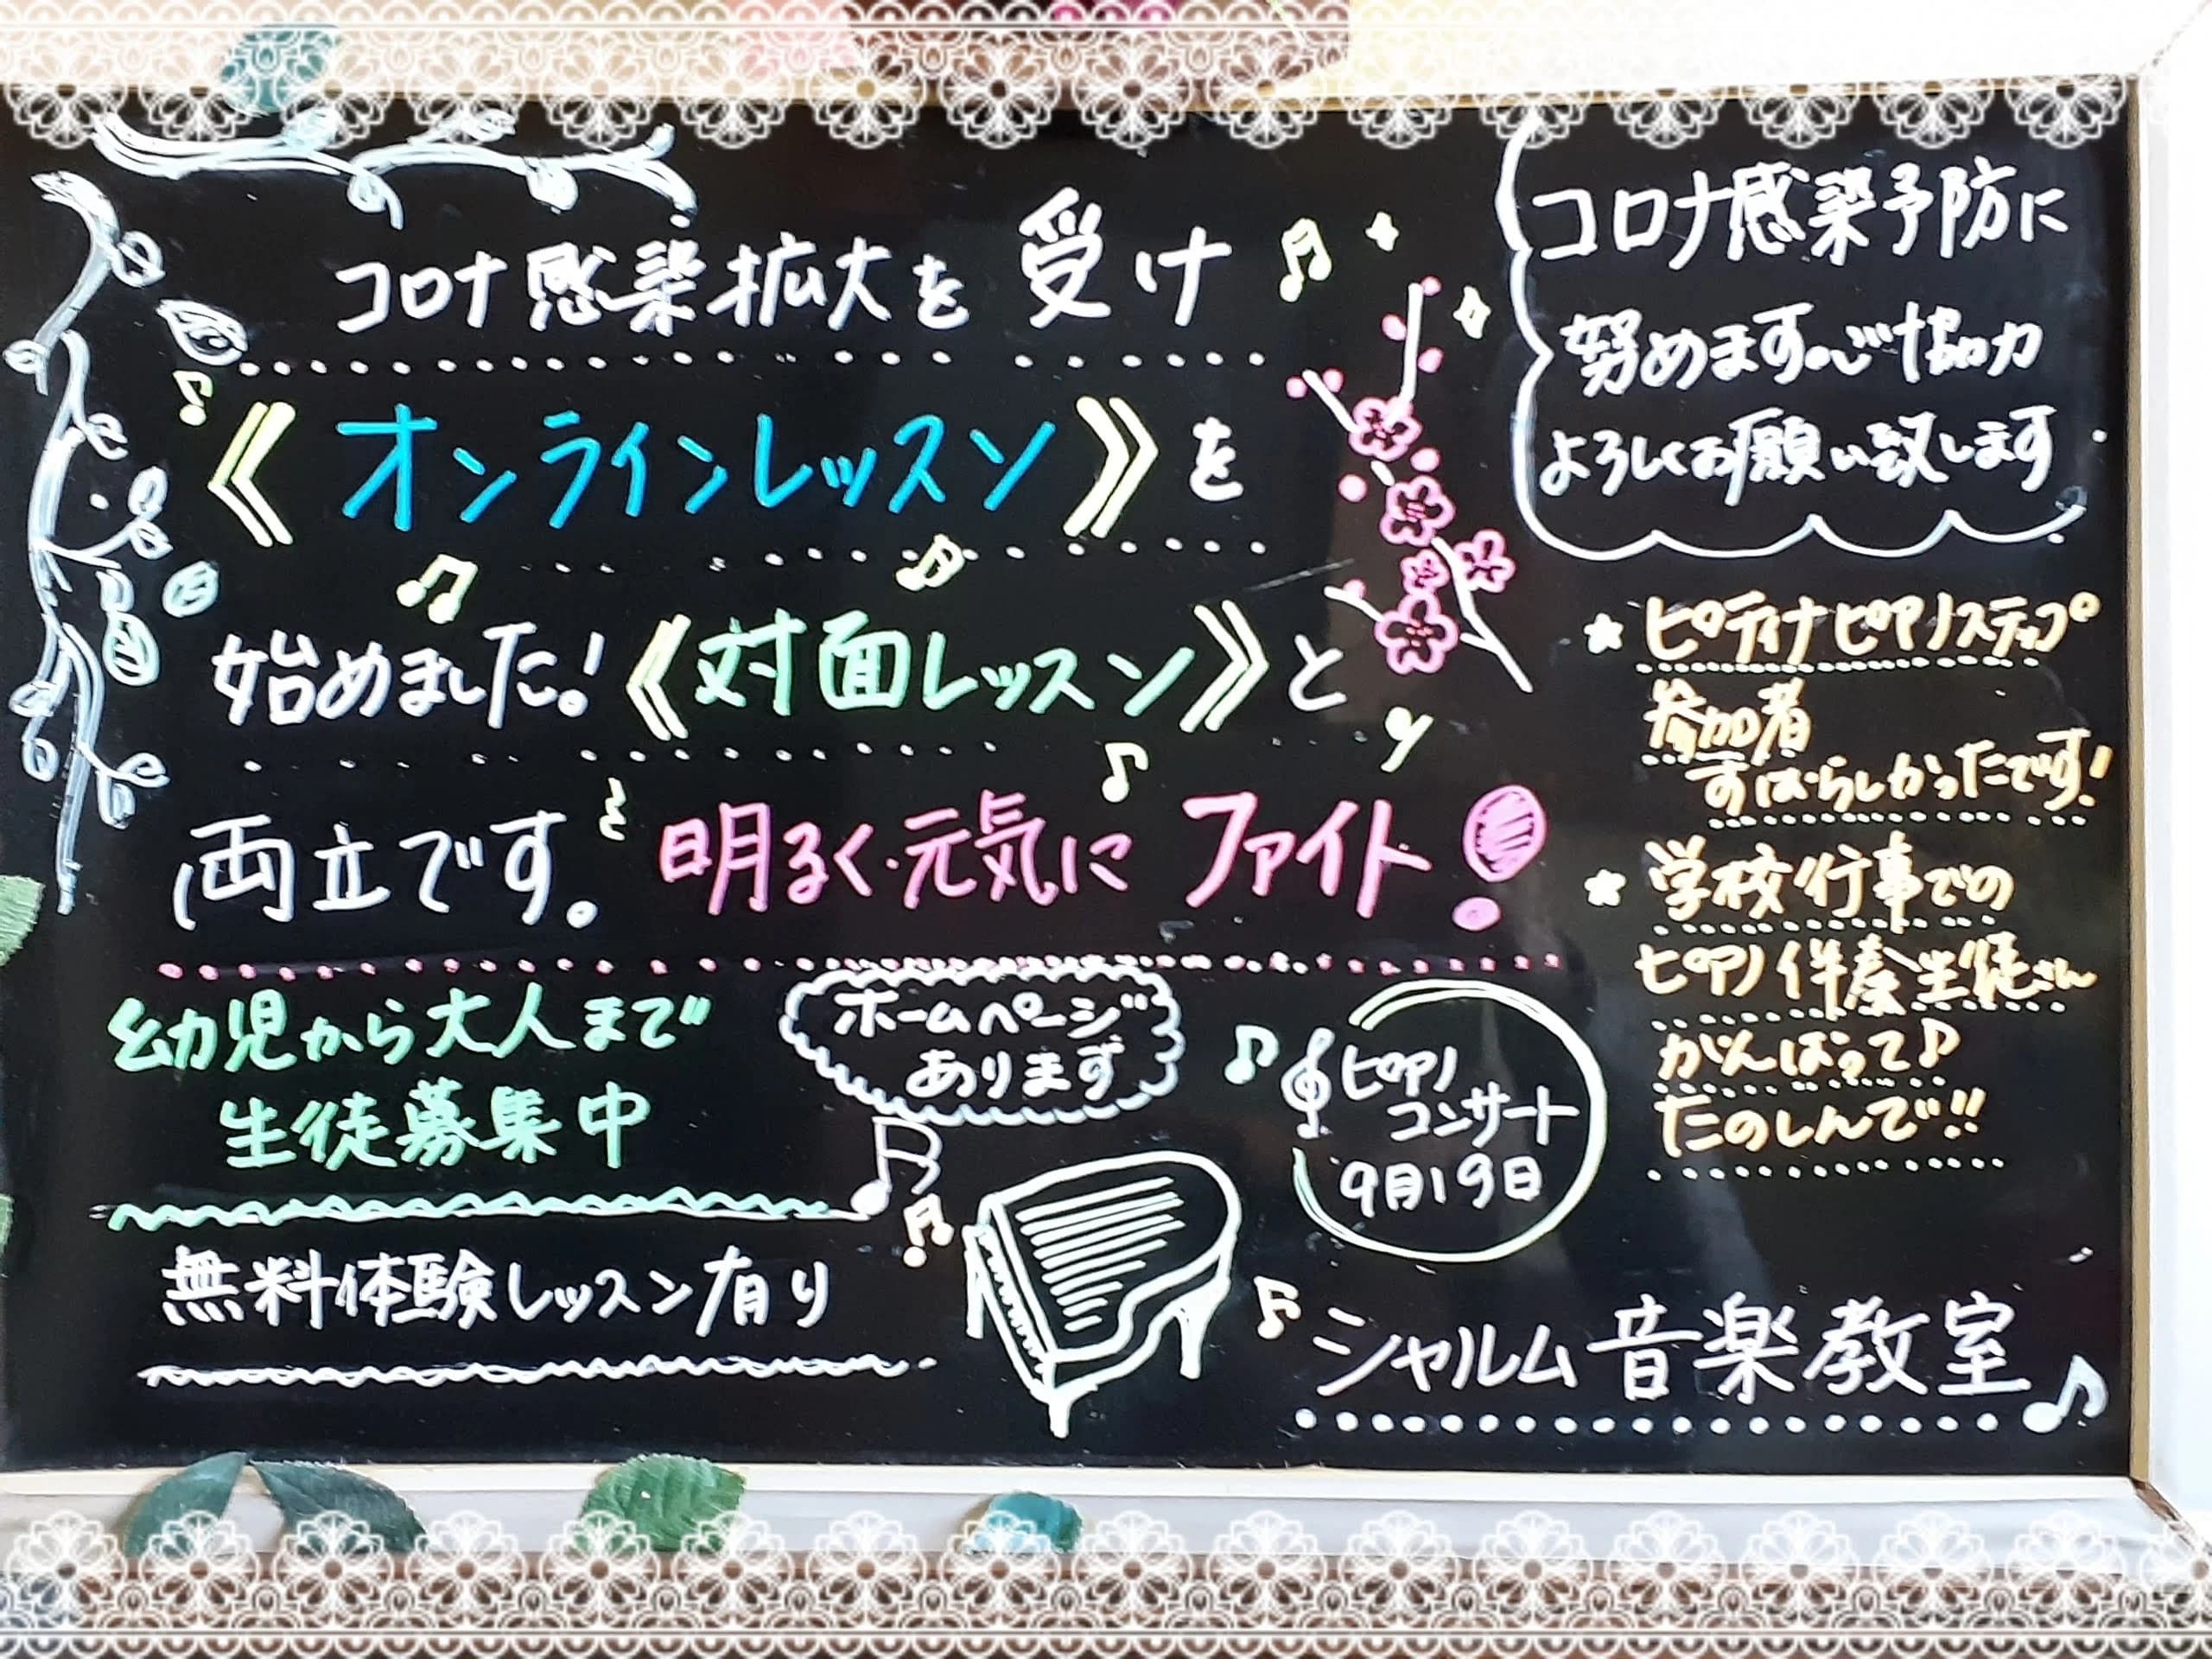 コロナ感染拡大を受け
《オンラインレッスン》を
始めました!《対面レッスン》と
両立です。明るく・元気にファイト!
コロナ感染予防に
努めます。ご協力
よろしくお願い致します
★ピティナピアノステップ
参加者
すばらしかったです!
★学校行事での
ピアノ伴奏生徒さん
がんばって♪
たのしんで!!
幼児から大人まで
生徒募集中
無料体験レッスン有り
ホームページ
あります
ピアノ
コンサート
9月19日
シャルム音楽教室